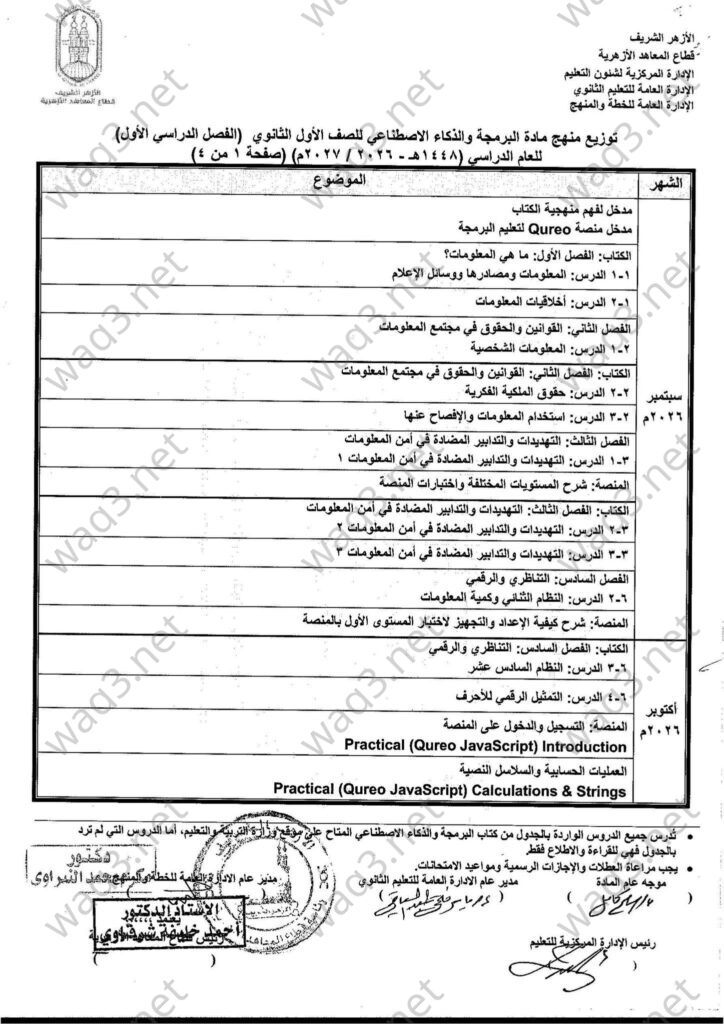 الأزهر الشريف
قطاع المعاهد الأزهرية
الإدارة المركزية لشئون التعليم
الإدارة العامة للتعليم الثانوي
الإدارة العامة للخطة والمنهج
الأزهر الشريف
قطاع المعاهد الأزهرية
توزيع منهج مادة البرمجة والذكاء الاصطناعي للصف الأول الثانوي (الفصل الدراسي الأول)
للعام الدراسي (١٤٤٨هـ - ٢٠٢٦ / ٢٠٢٧م) (صفحة ١ من ٤)
الشهر
الموضوع
سبتمبر
٢٠٢٦م
مدخل لفهم منهجية الكتاب
مدخل منصة Qureo لتعليم البرمجة
الكتاب: الفصل الأول: ما هي المعلومات؟
١-١ الدرس: المعلومات ومصادرها ووسائل الإعلام
١-٢ الدرس: أخلاقيات المعلومات
الفصل الثاني: القوانين والحقوق في مجتمع المعلومات
٢-١ الدرس: المعلومات الشخصية
الكتاب: الفصل الثاني: القوانين والحقوق في مجتمع المعلومات
٢-٢ الدرس: حقوق الملكية الفكرية
٢-٣ الدرس: استخدام المعلومات والإفصاح عنها
الفصل الثالث: التهديدات والتدابير المضادة في أمن المعلومات
٣-١ الدرس: التهديدات والتدابير المضادة في أمن المعلومات ١
المنصة: شرح المستويات المختلفة واختبارات المنصة
الكتاب: الفصل الثالث: التهديدات والتدابير المضادة في أمن المعلومات
٣-٢ الدرس: التهديدات والتدابير المضادة في أمن المعلومات ٢
٣-٣ الدرس: التهديدات والتدابير المضادة في أمن المعلومات ٣
الفصل السادس: التناظري والرقمي
٦-٢ الدرس: النظام الثنائي وكمية المعلومات
المنصة: شرح كيفية الإعداد والتجهيز لاختبار المستوى الأول بالمنصة
أكتوبر
٢٠٢٦م
الكتاب: الفصل السادس: التناظري والرقمي
٦-٣ الدرس: النظام السادس عشر
٦-٤ الدرس: التمثيل الرقمي للأحرف
المنصة: التسجيل والدخول على المنصة
Practical (Qureo JavaScript) Introduction
العمليات الحسابية والسلاسل النصية
Practical (Qureo JavaScript) Calculations & Strings
• تُدرس جميع الدروس الواردة بالجدول من كتاب البرمجة والذكاء الاصطناعي المتاح على موقع وزارة التربية والتعليم، أما الدروس التي لم ترد
بالجدول فهي للقراءة والاطلاع فقط.
• يجب مراعاة العطلات والإجازات الرسمية ومواعيد الامتحانات.
موجه عام المادة
مدير عام الادارة العامة للتعليم الثانوي
مدير عام الادارة العامة للخطة والمنهج
دكتور
رئيس الإدارة المركزية للتعليم
يعتمد
رئيس قطاع المعاهد الأزهرية
الأستاذ الدكتور
أحمد خليفة شرقاوي
waq3.net